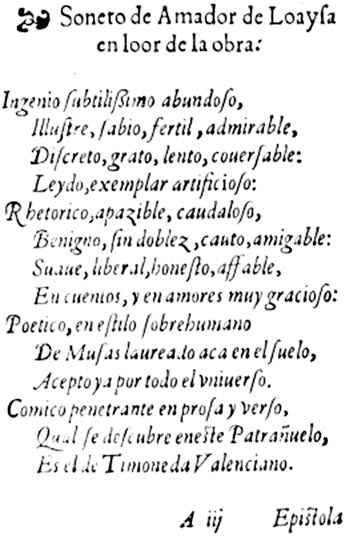 Soneto de Amador de Loaysa
en loor de la obra:
Ingenio subtilissimo abundoso,
Illustre, sabio, fertil, admirable,
Discreto, grato, lento, couersable:
Leydo, exemplar artificioso:
Rhetorico, apazible, caudaloso,
Benigno, sin doblez, cauto, amigable:
Suaue, liberal, honesto, affable,
En cuentos, y en amores muy gracioso:
Poetico, en estilo sobrehumano
De Musas laureado aca en el suelo,
Acepto ya por todo el vniuerso.
Comico penetrante en prosa y verso,
Qual se descubre eneste Patrañuelo,
Es el de Timoneda Valenciano.
A iij Epistola